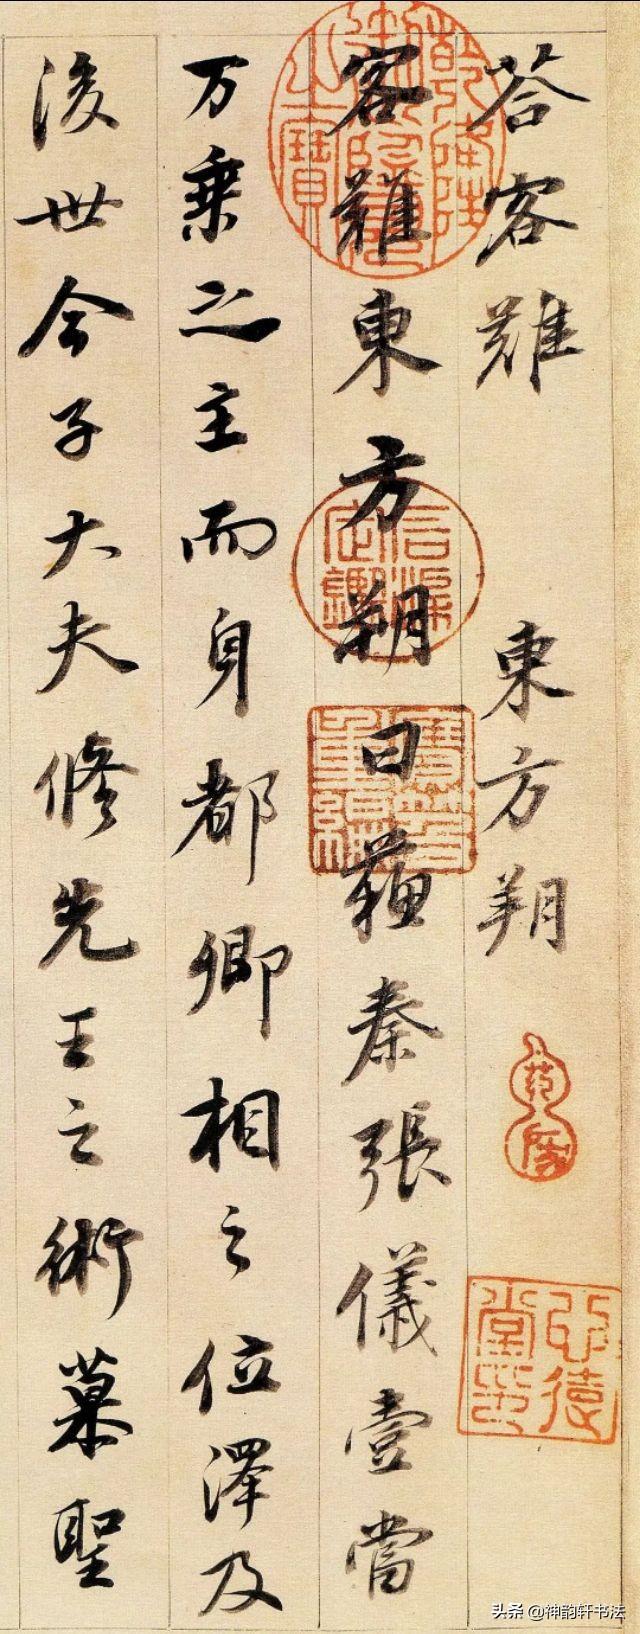 荅客難 東方朔
客難東方朔曰蘓秦張儀壹當
万乘之主而身都卿相之位澤及
後世今子大夫修先王之術慕聖
头条 @神韵轩书法